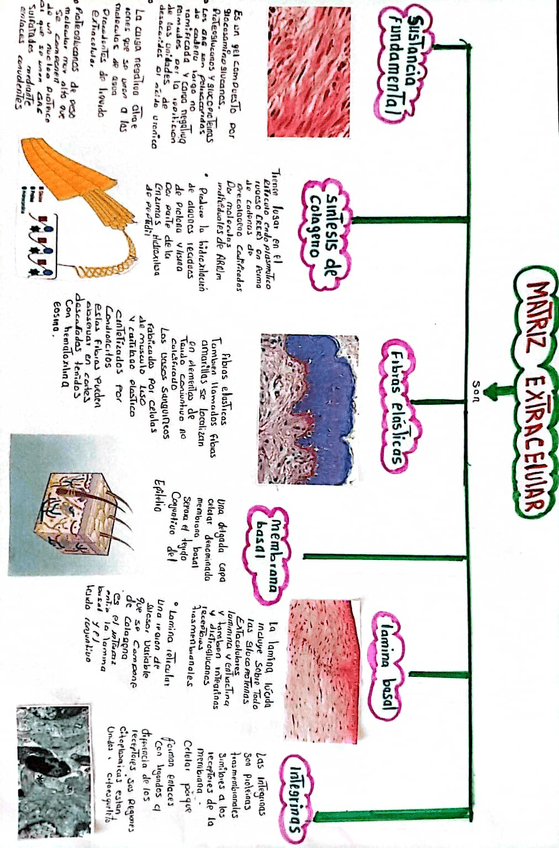 MATRIZ EXTRACELULAR
son
Sustancia
fundamental
Es un gel compuesto por
glocosaminoglucanos,
Proteoglucanos y glucoproteinas
• Los GAG son polisacaridos
de cadena larga no
ramificada y carga negativa
formados por la repiticion
de las unidades de
desacaridos al acido uronico
La carga negativa atrae
iones que se unen a las
moleculas de agua
Procedentes de liquido
Extracelular
• Proteoglucanos de peso
molecular muy alto que
se
de un nucleo Proteico
al que se unen GAG
Sulfatados mediante
enlaces convalentes
Sintesis de
Colageno
Tienen lugar en el
reticulo endoplasmatico
rugoso (RER) en forma
de cadenas de
precolageno codificados
Por moleculas
individuales de ARNm
• Produce la hidroxilacion
de algunos residuos
de Prolina y lisina
Por parte de la
Enzima
Fibras elasticas
Fibras elasticas
Tambien llamados fibras
amarillas se localizan
en elementos de
Tejido conjuntivo no
calcificado
Los vasos sanguineos
fabricados por celulas
de musculo liso
y cartilago elastico
sintetizados por
Condrocitos
estas fibras Pueden
observar en cortes
descartados teñidos
Con hematoxilina
eosina.
membrana
basal
una delgada capa
celular denominada
membrana basal
separa el tejido
Conjuntivo del
Epitelio
lamina basal
La lamina lucida
incluye sobre todo
las glucoproteinas
Extracelulares
laminina y
y tambien integrinas
y distroglucanos
receptores
trasmenbranales
• Lamina reticular
Una region de
Grosor variable
que se compone
de Colageno
es el
entre la lamina
basal y el
tejido conjuntivo
Integrinas
Las Integrinas
son Proteinas
trasmenbranales
similares a los
receptores de la
membrana
Celular porque
forman enlaces
Con ligandos a
diferencia de los
receptores, sus regiones
citoplasmicas estan
unidas a citoesqueleto